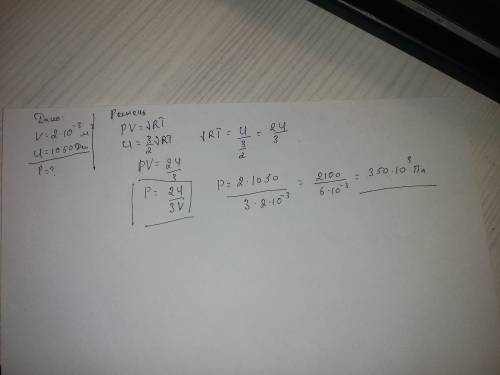 Дано:
V = 2·10⁻³ м³
U = 1050 Дж
P = ?
Решение
PV = νRT
U = 3/2 νRT
νRT = U / (3/2) = 2U/3
PV = 2U/3
P = 2U/3V
P = 2·1050 / 3·2·10⁻³ = 2100 / 6·10⁻³ = 350·10³ Па